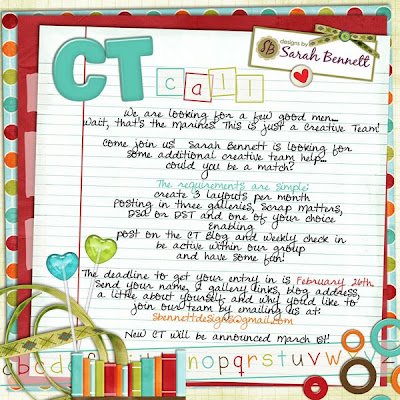 CT call
designs by
SB Sarah Bennett
We are looking for a few good men...
wait, that's the marines. This is just a Creative Team!
Come join us! Sarah Bennett is looking for
some additional creative team help...
could you be a match?
The requirements are simple:
create 3 layouts per month
posting in three galleries, Scrap Matters,
DSA or DST and one of your choice
Enabling
post on the CT Blog and weekly check in
be active within our group
and have some fun!
The deadline to get your entry in is February 26th.
Send your name, 2 gallery links, blog address,
a little about yourself and why you'd like to
join our team by emailing us at:
sbennettdesigns@gmail.com
New CT will be announced March 1st!
abcdef
nopqrstuvw